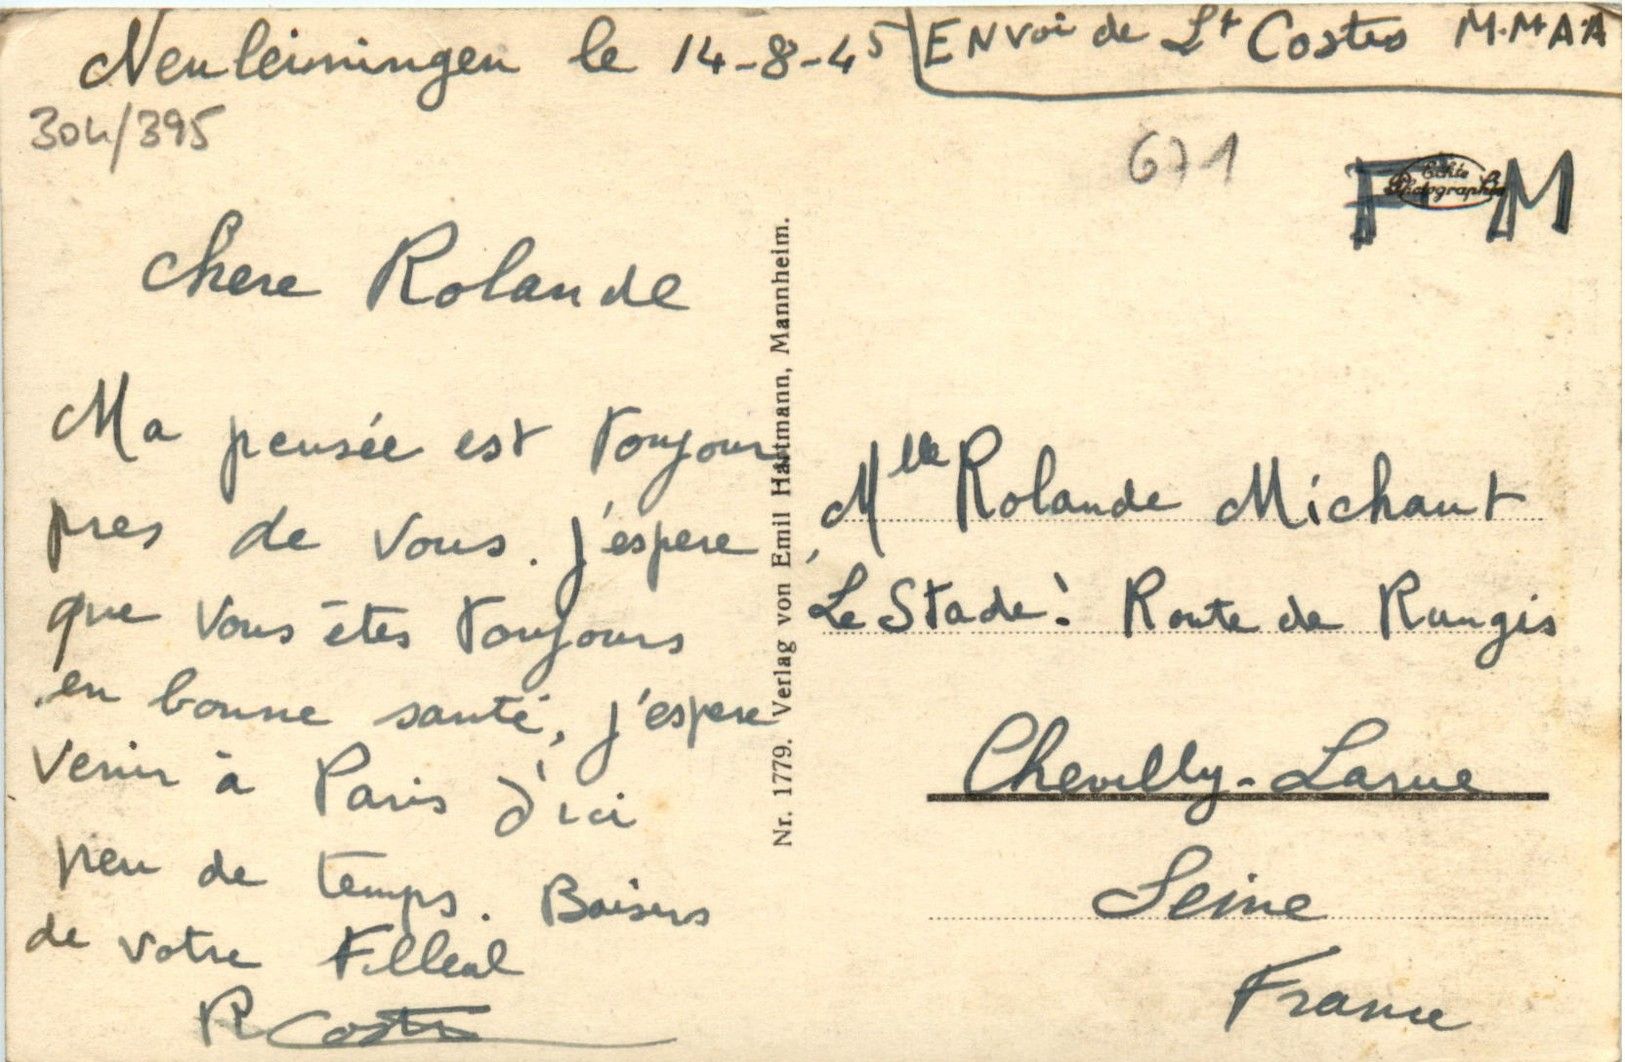 Neuleiningen le 14-8-45
ENVoi de Lt Costes M.MAA
304/395
671
FM
Echte
Photographie
Chere Rolande
Ma pensée est toujours
pres de vous. j'espere
que vous êtes toujours
en bonne santé, j'espere
venir à Paris d'ici
peu de temps. Baisers
de votre Filleul
R Costes
Nr. 1779. Verlag von Emil Hartmann, Mannheim.
Mlle Rolande Michaut
Le Stade! Route de Rungis
Chevilly-Larue
Seine
France